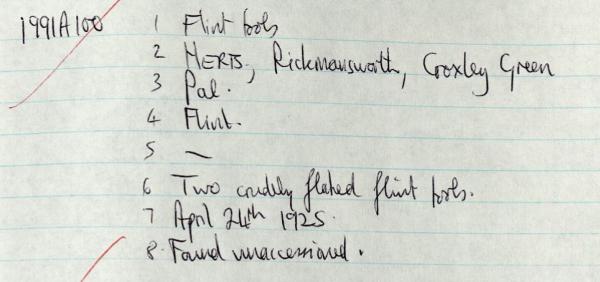 1991A100 1 Flint tools
2 HERTS, Rickmansworth, Croxley Green
3 Pal.
4 Flint.
5 —
6 Two crudely flaked flint tools.
7 April 24th 1925.
8. Found unaccessioned.